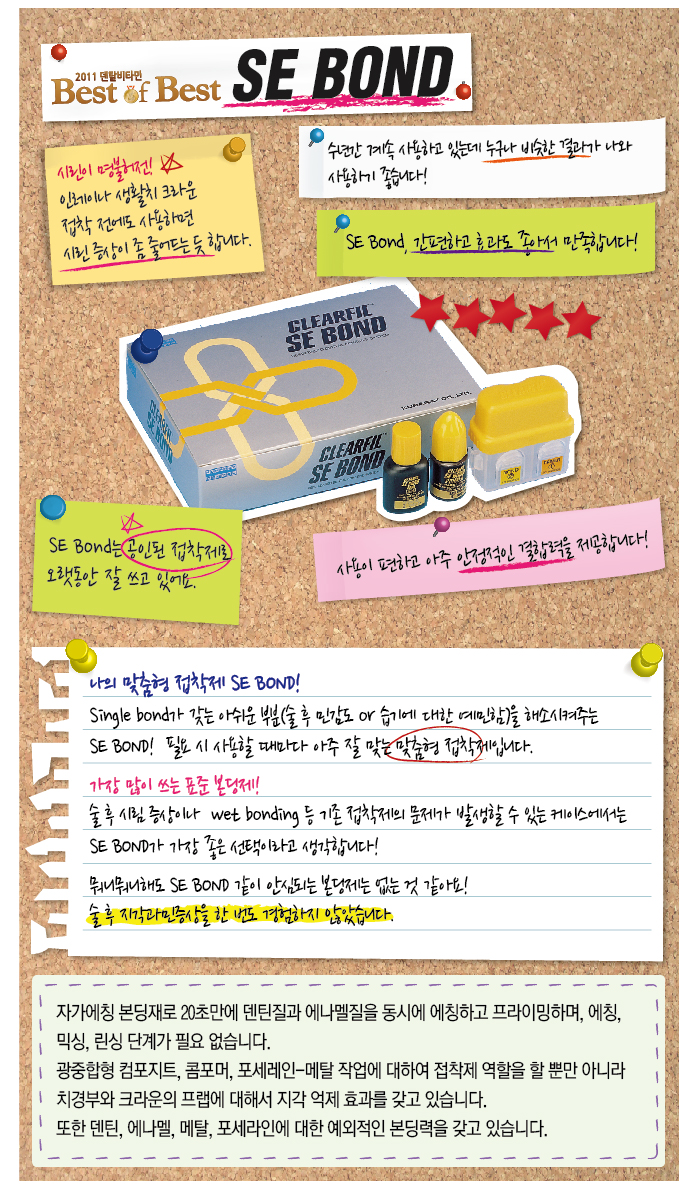 2011 덴탈비타민
Best of Best SE BOND
시린이 명불허전!
인레이나 생활치 크라운
접착 전에도 사용하면
시린 증상이 좀 줄어드는 듯 합니다.
수년간 계속 사용하고 있는데 누구나 비슷한 결과가 나와
사용하기 좋습니다!
SE Bond, 간편하고 효과도 좋아서 만족합니다!
CLEARFIL™
SE BOND
CLEARFIL™
SE BOND
SE Bond는 공인된 접착제로
오랫동안 잘 쓰고 있어요.
사용이 편하고 아주 안정적인 결합력을 제공합니다!
나의 맞춤형 접착제 SE BOND!
Single bond가 갖는 아쉬운 부분(술 후 민감도 or 습기에 대한 예민함)을 해소시켜주는
SE BOND! 필요 시 사용할 때마다 아주 잘 맞는 맞춤형 접착제입니다.
가장 많이 쓰는 표준 본딩제!
술 후 시린 증상이나 wet bonding 등 기존 접착제의 문제가 발생할 수 있는 케이스에서는
SE BOND가 가장 좋은 선택이라고 생각합니다!
뭐니뭐니해도 SE BOND 같이 안심되는 본딩제는 없는 것 같아요!
술 후 지각과민증상을 한 번도 경험하지 않았습니다.
자가에칭 본딩재로 20초만에 덴틴질과 에나멜질을 동시에 에칭하고 프라이밍하며, 에칭,
믹싱, 린싱 단계가 필요 없습니다.
광중합형 컴포지트, 콤포머, 포세레인-메탈 작업에 대하여 접착제 역할을 할 뿐만 아니라
치경부와 크라운의 프랩에 대해서 지각 억제 효과를 갖고 있습니다.
또한 덴틴, 에나멜, 메탈, 포세라인에 대한 예외적인 본딩력을 갖고 있습니다.